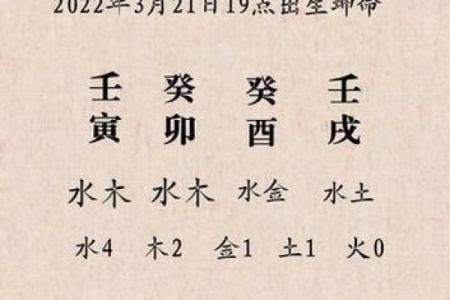 2022年3月21日19点出生
壬 癸 癸 壬
寅 卯 酉 戌
水木 水木 水金 水土
水4 木2 金1 土1 火0